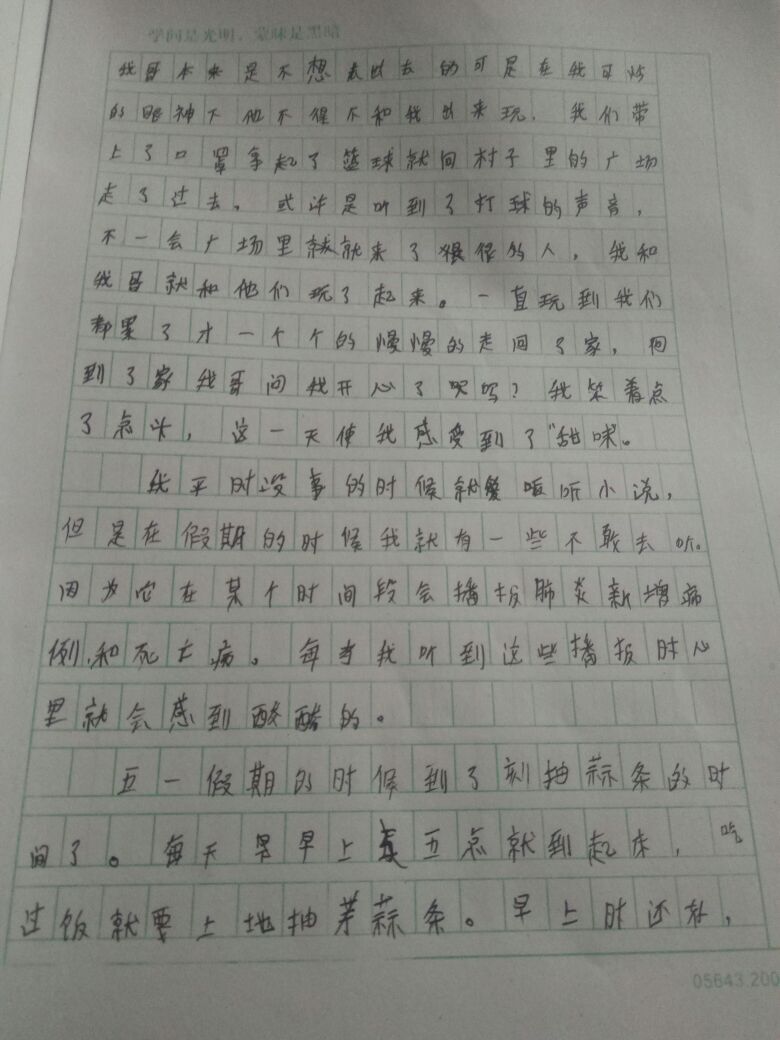 学问是光明，蒙昧是黑暗
我哥本来是不想去的可是在我可怜
的眼神下他不得不和我出来玩，我们带
上了口罩拿起了篮球就向村子里的广场
走了过去。或许是听到了打球的声音，
不一会广场里就来了很多的人，我和
我哥就和他们玩了起来。一直玩到我们
都累了才一个个的慢慢的走回了家，回
到了家我哥问我开心了吗？我笑着点
了点头，这一天使我感受到了“甜味”。
我平时没事的时候就爱听小说，
但是在假期的时候我就有一些不敢去听。
因为它在某个时间段会播报肺炎新增病
例，和死亡病。每当我听到这些播报时心
里就会感到酸酸的。
五一假期的时候到了刻抽蒜条的时
间了。每天早早上五点就到起床，吃
过饭就要上地抽蒜条。早上时还补，
05643.200